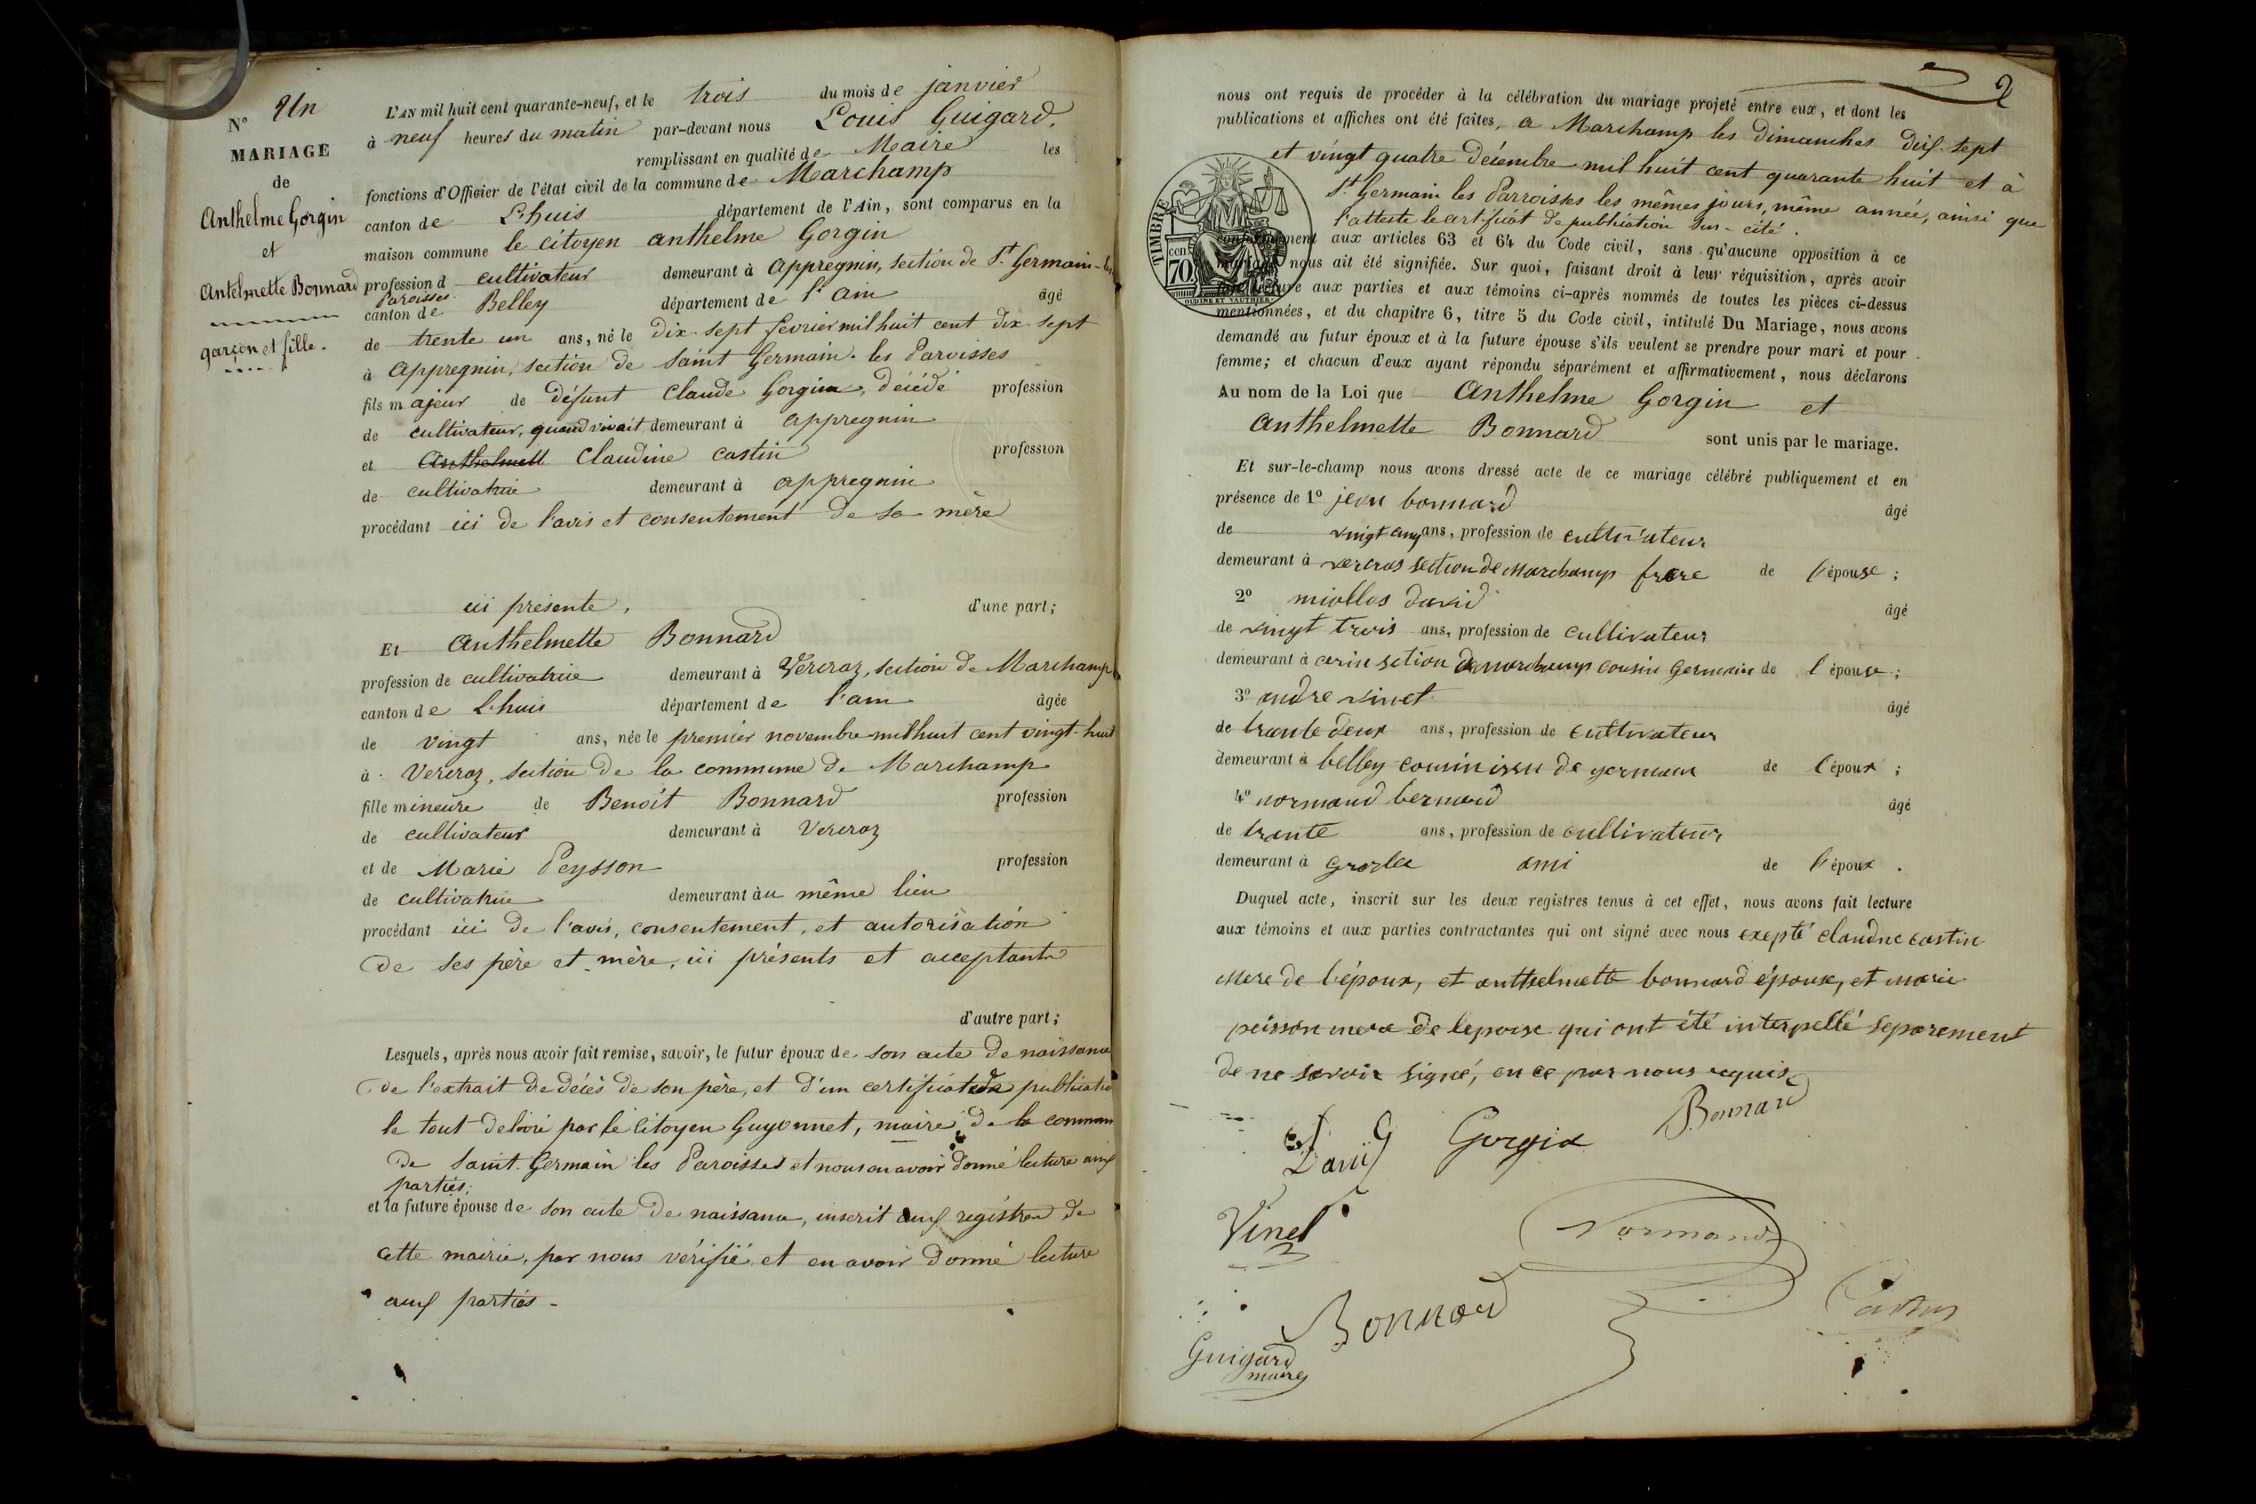 N° Un
MARIAGE
de
Anthelme Gorgin
et
Antelmette Bonnard
garçon et fille.
L'AN mil huit cent quarante-neuf, et le trois du mois de janvier
à neuf heures du matin par-devant nous Louis Guigard,
remplissant en qualité de Maire les
fonctions d'Officier de l'état civil de la commune de Marchamp
canton de Lhuis département de l'Ain, sont comparus en la
maison commune le citoyen anthelme Gorgin
profession d cultivateur demeurant à appregnin, section de St Germain-les
Paroisses
canton de Belley département de l'ain âgé
de trente un ans, né le dix-sept fevrier mil huit cent dix-sept
à appregnin, section de Saint Germain-les Paroisses
fils majeur de défunt Claude Gorgin, décédé profession
de cultivateur, quand vivait demeurant à appregnin
et Anthelmett Claudine Castin profession
de cultivatrice demeurant à appregnin
procédant ici de l'avis et consentement de sa mère
ici présente, d'une part;
Et Anthelmette Bonnard
profession de cultivatrice demeurant à Vercraz, section de Marchamp
canton de Lhuis département de l'ain âgée
de vingt ans, née le premier novembre mil huit cent vingt-huit
à Vercraz, section de la commune de Marchamp
fille mineure de Benoit Bonnard profession
de cultivateur demeurant à Vercraz
et de Marie Peysson profession
de cultivatrice demeurant àu même lieu
procédant ici de l'avis, consentement, et autorisation
de ses père et mère, ici présents et acceptants
d'autre part;
Lesquels, après nous avoir fait remise, savoir, le futur époux de son acte de naissance
de l'extrait de décès de son père, et d'un certificat de publication
le tout délivré par le citoyen Guyonnet, maire de la commune
de Saint-Germain les Paroisses et nous en avoir donné lecture aux
parties;
et la future épouse de son acte de naissance, inscrit aux registres de
cette mairie, par nous vérifié et en avoir donné lecture
aux parties.
2
nous ont requis de procéder à la célébration du mariage projeté entre eux, et dont les
publications et affiches ont été faites, a Marchamp les dimanches dix-sept
et vingt quatre décembre mil huit cent quarante huit et à
St Germain les Parroisses les mêmes jours, même année, ainsi que
l'atteste le certificat de publication sus-cité.
TIMBRE
cen
70
OUDINE ET VAUTHIER
conformément aux articles 63 et 64 du Code civil, sans qu'aucune opposition à ce
mariage nous ait été signifiée. Sur quoi, faisant droit à leur réquisition, après avoir
fait lecture aux parties et aux témoins ci-après nommés de toutes les pièces ci-dessus
mentionnées, et du chapitre 6, titre 5 du Code civil, intitulé Du Mariage, nous avons
demandé au futur époux et à la future épouse s'ils veulent se prendre pour mari et pour
femme; et chacun d'eux ayant répondu séparément et affirmativement, nous déclarons
Au nom de la Loi que Anthelme Gorgin et
Anthelmette Bonnard sont unis par le mariage.
Et sur-le-champ nous avons dressé acte de ce mariage célébré publiquement et en
présence de 1° jean bonnard âgé
de vingt cinq ans, profession de cultivateur
demeurant à vercras section de Marchamp frere de l'épouse;
2° miollos david âgé
de vingt trois ans, profession de cultivateur
demeurant à cerin section de marchamp cousin germain de l'épouse;
3° andre vinet âgé
de trante deux ans, profession de cultivateur
demeurant à belley cousin issu de germain de l'époux;
4° normand bernard âgé
de trante ans, profession de cultivateur
demeurant à groslee ami de l'époux.
Duquel acte, inscrit sur les deux registres tenus à cet effet, nous avons fait lecture
aux témoins et aux parties contractantes qui ont signé avec nous exepté claudne castin
mere de l'époux, et anthelmette bonnard épouse, et marie
peisson mere de lepouse qui ont été interpellé séparement
de ne savoir signé, en ce par nous requis
Davi Gorgin Bonnard
Vinet Normand
Bonnard Castin
Guigard
maire